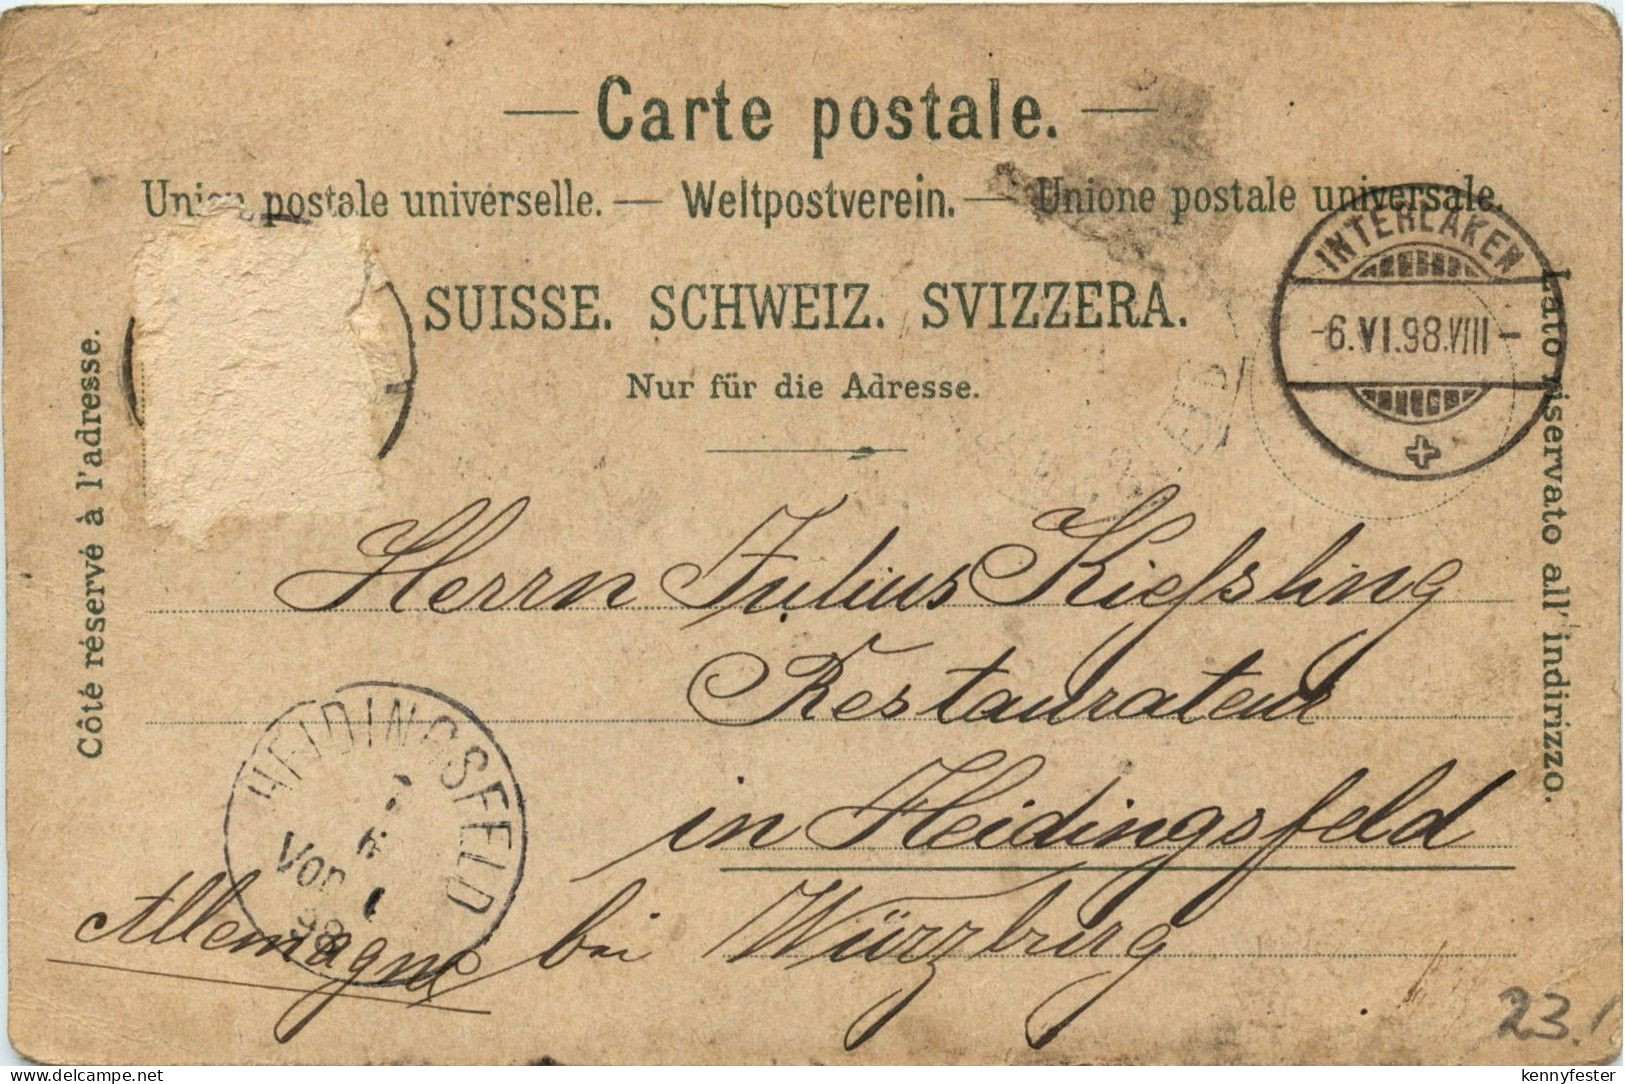 — Carte postale. —
Union postale universelle. — Weltpostverein. — Unione postale universale.
SUISSE. SCHWEIZ. SVIZZERA.
Nur für die Adresse.
Côté réservé à l'adresse.
Lato riservato all'indirizzo.
INTERLAKEN
-6.VI.98.VIII-
Herrn Julius Kiefsling
Restaurateur
in Heidingsfeld
bei Würzburg
Allemagne
HEIDINGSFELD
Vor
98
23.
kennyfester